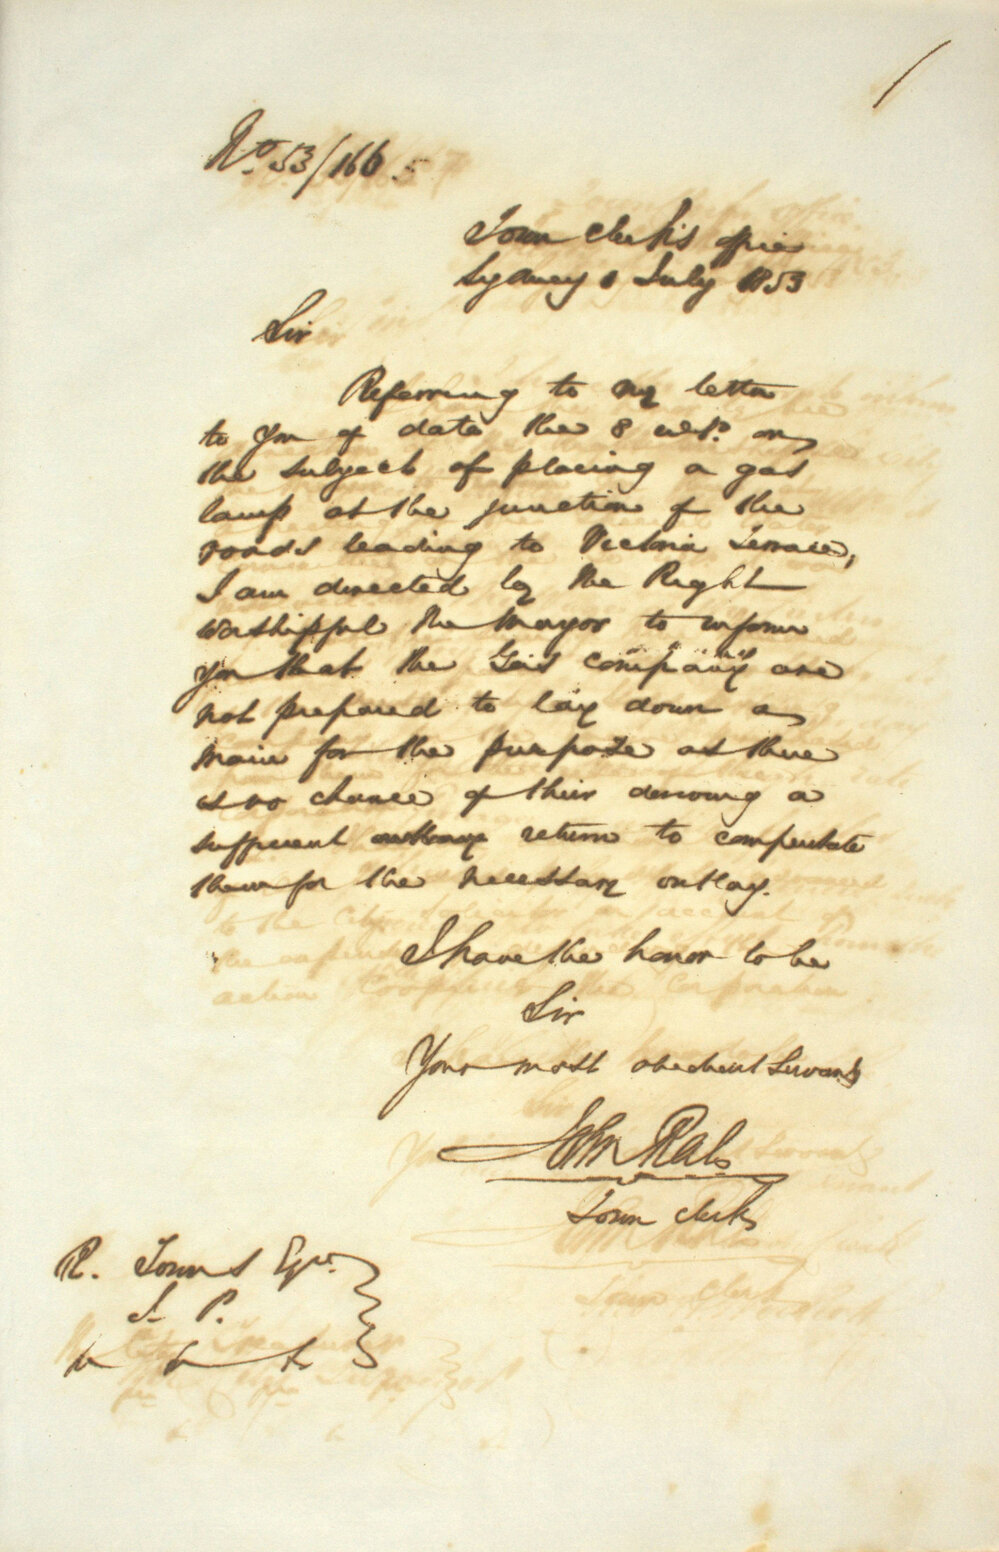 No. 53/166
Town Clerk's office
Sydney 1 July 1853
Sir
Referring to my letter
to you of date the 8 ult.o on
the subject of placing a gas
lamp at the junction of the
roads leading to Victoria Terrace,
I am directed by the Right
Worshipful the Mayor to inform
you that the Gas Company are
not prepared to lay down a
main for the purpose as there
is no chance of their deriving a
sufficient return to compensate
them for the necessary outlay.
I have the honor to be
Sir
Your most obedient Servant
John Rae
Town Clerk
R. Towns Esqre.
J. P.